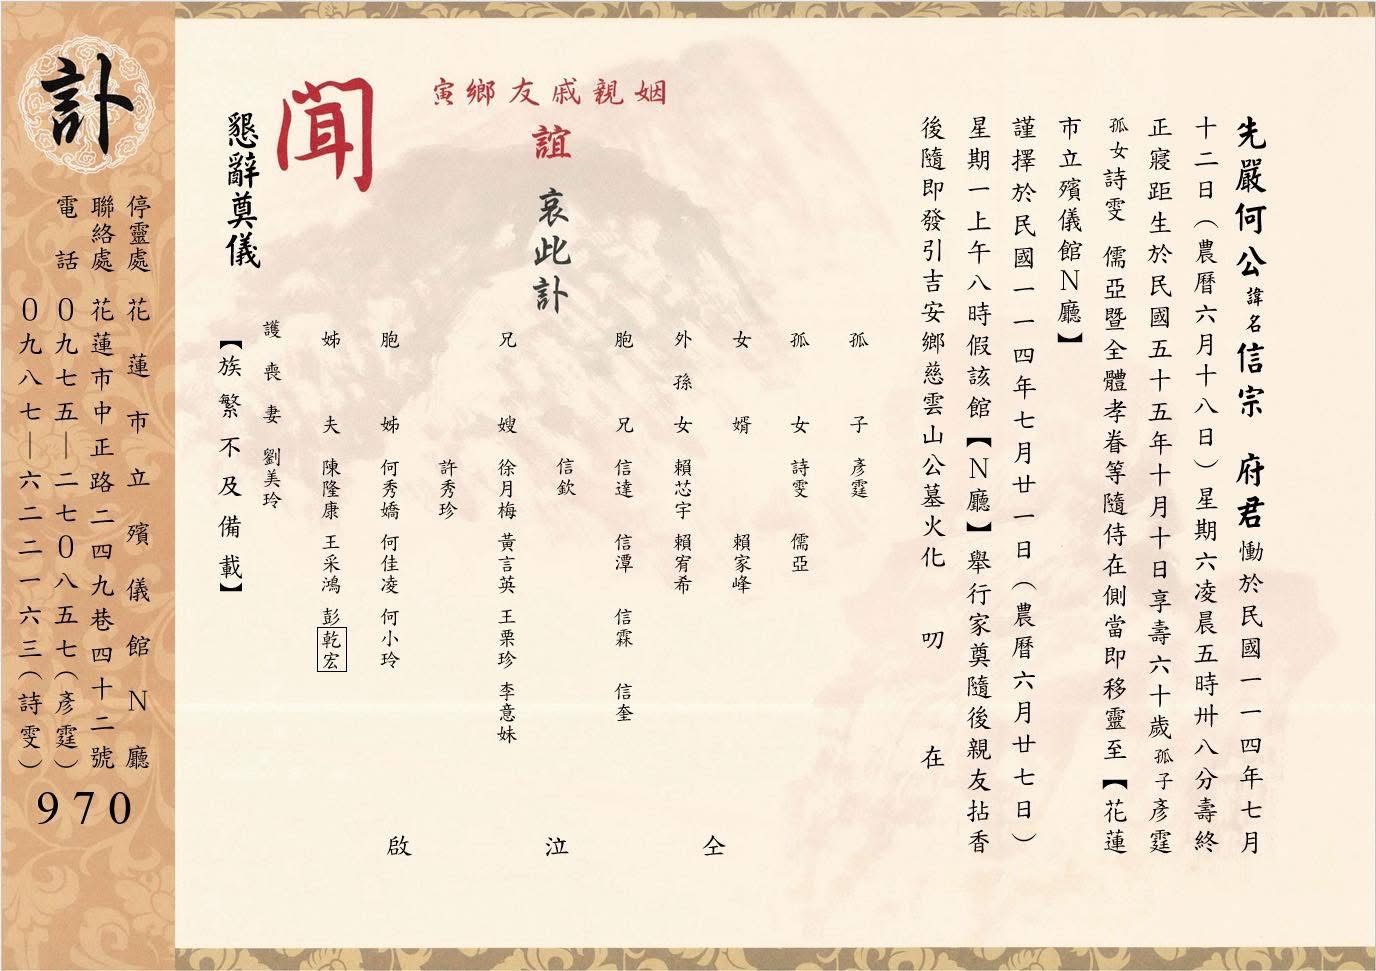 先嚴何公諱名信宗 府君慟於民國一一四年七月
十二日（農曆六月十八日）星期六凌晨五時卅八分壽終
正寢距生於民國五十五年十月十日享壽六十歲孤子彥霆
孤女詩雯 儒亞暨全體孝眷等隨侍在側當即移靈至【花蓮
市立殯儀館N廳】
謹擇於民國一一四年七月廿一日（農曆六月廿七日）
星期一上午八時假該館【N廳】舉行家奠隨後親友拈香
後隨即發引吉安鄉慈雲山公墓火化 叨 在
姻親戚友鄉寅
誼 哀此訃
聞
懇辭奠儀
孤子 彥霆
孤女 詩雯 儒亞
女婿 賴家峰
外孫女 賴芯宇 賴宥希
胞兄 信達 信潭 信霖 信奎
信欽
兄嫂 徐月梅 黃言英 王栗珍 李意妹
許秀珍
胞姊 何秀嬌 何佳凌 何小玲
姊夫 陳隆康 王采鴻 彭乾宏
護喪妻 劉美玲
【族繁不及備載】
仝 泣 啟
訃
停靈處 花蓮市立殯儀館N廳
聯絡處 花蓮市中正路二四九巷四十二號
電話 0九七五—二七0八五七（彥霆）
0九八七—六二二一六三（詩雯）
970